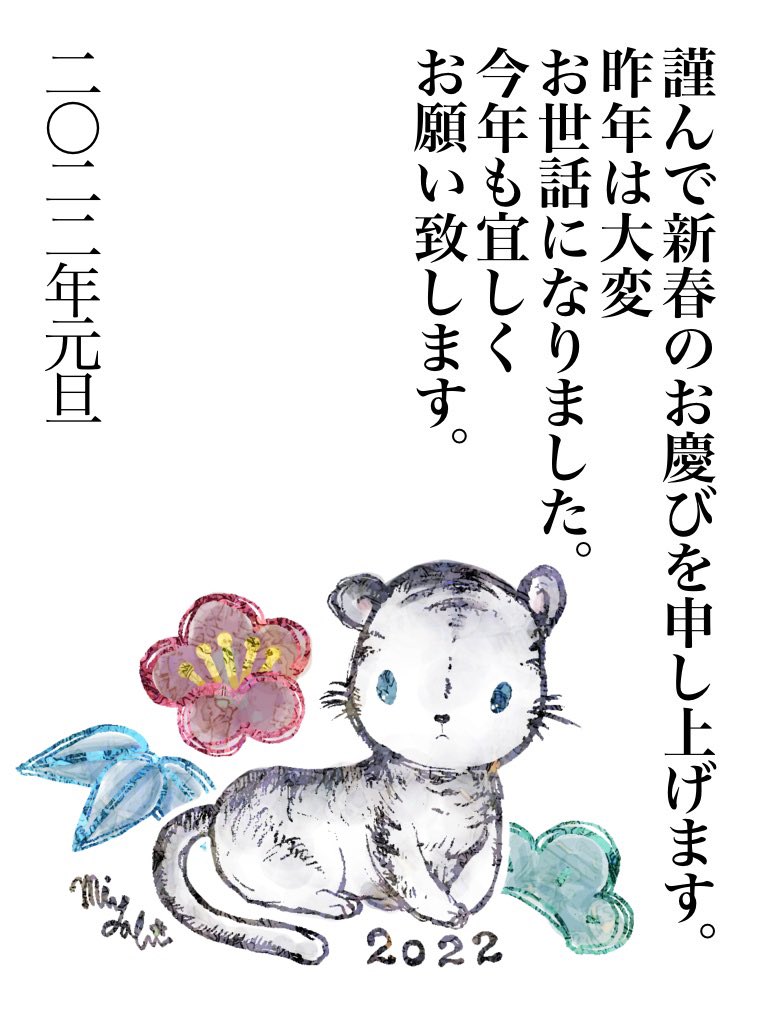 謹んで新春のお慶びを申し上げます。
昨年は大変
お世話になりました。
今年も宜しく
お願い致します。
二〇二二年元旦
2022